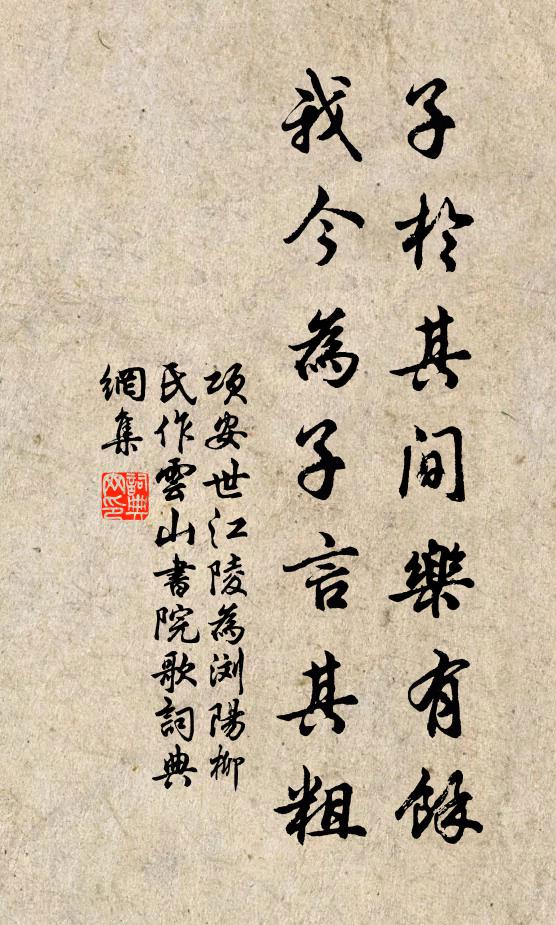 子於其間樂有餘
我今為子言其粗
項安世江陵為浏陽柳
民作雲山書院歌詞典
網集
詞典網印